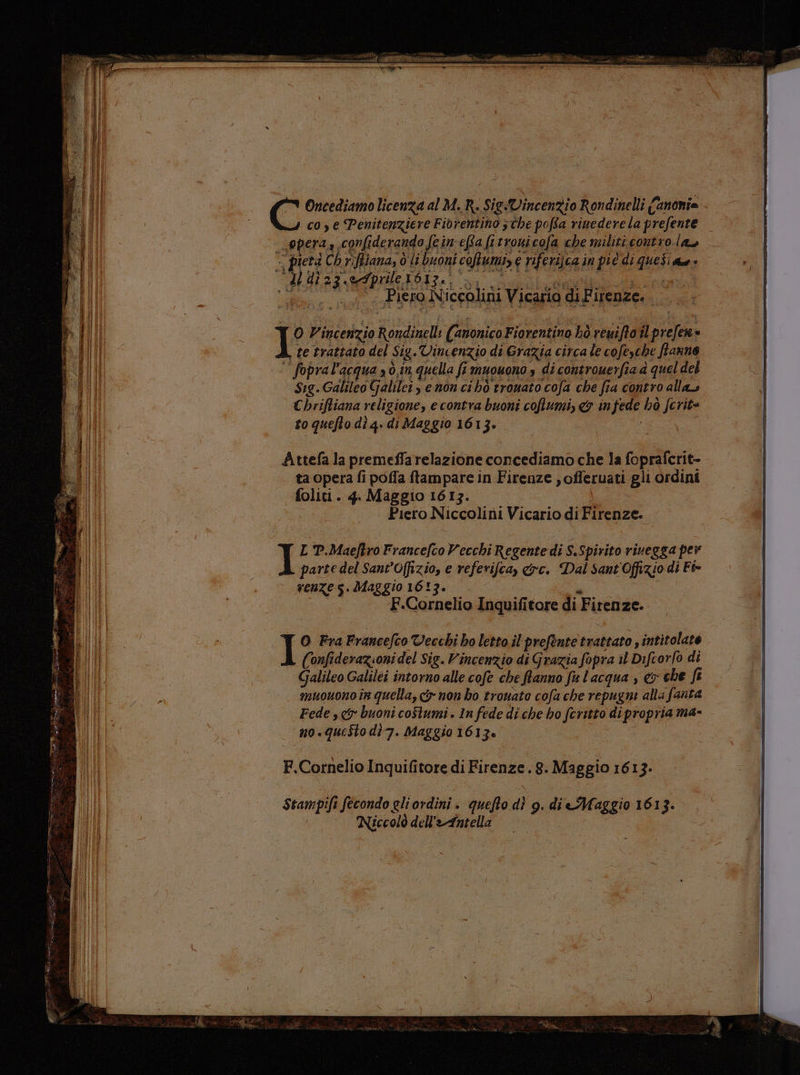 COncediamo licenza al M. R. Sig. Vincenzio Rondinelli Canoni=
co, e Penitenziere Fiorentino, che possa riuedere la presente
opera, considerando se in essa si troui cosa che militi contro la
pietà Christiana, ò li buoni costumi, e riferisca in piè di questa.
Il dì 23. Aprile 1613.
Piero Niccolini Vicario di Firenze.
IO Vincenzio Rondinelli Canonico Fiorentino hò reuisto il presen=
te trattato del Sig. Vincenzio di Grazia circa le cose, che stanno
sopra l'acqua, ò in quella si muouono, di controuersia à quel del
Sig. Galileo Galilei, e non ci hò trouato cosa che sia contro alla
Christiana religione, e contra buoni costumi, & in fede hò scrit=
to questo dì 4. di Maggio 1613.
Attesa la premessa relazione concediamo che la soprascrit-
ta opera si possa stampare in Firenze, osseruati gli ordini
soliti. 4. Maggio 1613.
Piero Niccolini Vicario di Firenze.
IL P. Maestro Francesco Vecchi Regente di S. Spirito riuegga per
parte del Sant'Offizio, e referisca, &c. Dal Sant'Offizio di Fi=
renze 5. Maggio 1613.
F. Cornelio Inquisitore di Firenze.
IO Fra Francesco Vecchi ho letto il presente trattato, intitolato
Considerazioni del Sig. Vincenzio di Grazia sopra il Discorso di
Galileo Galilei intorno alle cose che stanno su l'acqua, & che si
muouono in quella, & non ho trouato cosa che repugni alla santa
Fede, & buoni costumi. In fede di che ho scritto di propria ma=
no. questo dì 7. Maggio 1613.
F. Cornelio Inquisitore di Firenze. 8. Maggio 1613.
Stampisi secondo gli ordini. questo dì 9. di Maggio 1613.
Niccolò dell'Antella